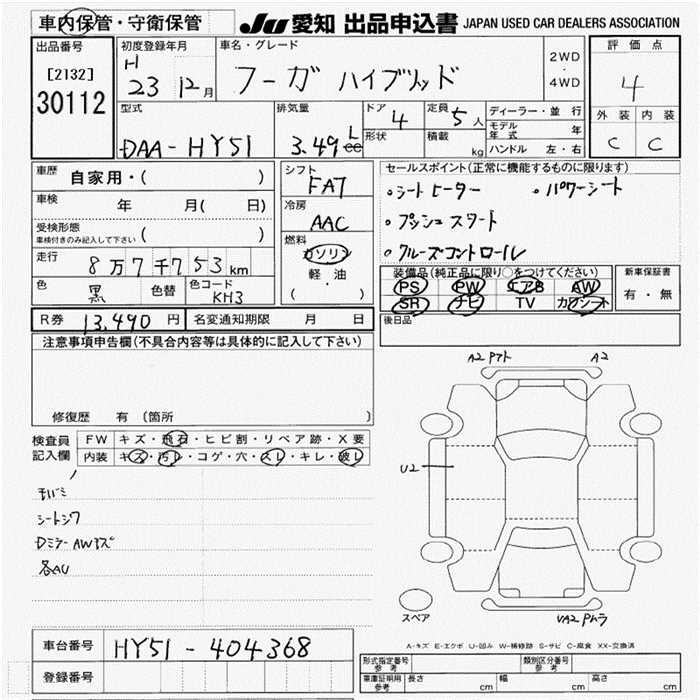 車内保管・守衛保管
JU 愛知 出品申込書 JAPAN USED CAR DEALERS ASSOCIATION
出品番号
[2132]
30112
初度登録年月
H
23 12月
車名・グレード
フーガ ハイブリッド
2WD
・
4WD
評価点
4
外装 内装
C C
型式
DAA-HY51
排気量
3.49 L
cc
ドア 4
形状
定員 5人
積載 kg
ディーラー・並行
モデル年式 年
ハンドル 左・右
車歴 自家用・( )
車検 年 月( 日)
受検形態
車検付きのみ記入して下さい ( )
走行 8万7千753km
色 黒 色替 色コード KH3
シフト
FA7
冷房
AAC
燃料
ガソリン
軽・油
( )
セールスポイント(正常に機能するものに限ります)
・シートヒーター ・パワーシート
・プッシュスタート
・クルーズコントロール
装備品(純正品に限り○をつけてください)
PS PW エアB AW
SR ナビ TV カワシート
新車保証書
有・無
R券 13,490円 名変通知期限 月 日
後日品
注意事項申告欄(不具合内容等は具体的に記入して下さい)
修復歴 有 (箇所 )
検査員
記入欄
FW キズ・飛石・ヒビ割・リペア跡・X要
内装 キズ・汚レ・コゲ・穴・スレ・キレ・破レ
シートシワ
Dミラー AWキズ
各AU
A2 Pアト A2
U2
スペア
VA2 Pムラ
A-キズ E-エクボ U-凹み W-補修跡 S-サビ C-腐食 XX-交換済
車台番号 HY51-404368
登録番号
形式指定番号
参考
類別区分番号
参考
車庫証明用
参考
長さ cm 幅 cm 高さ cm